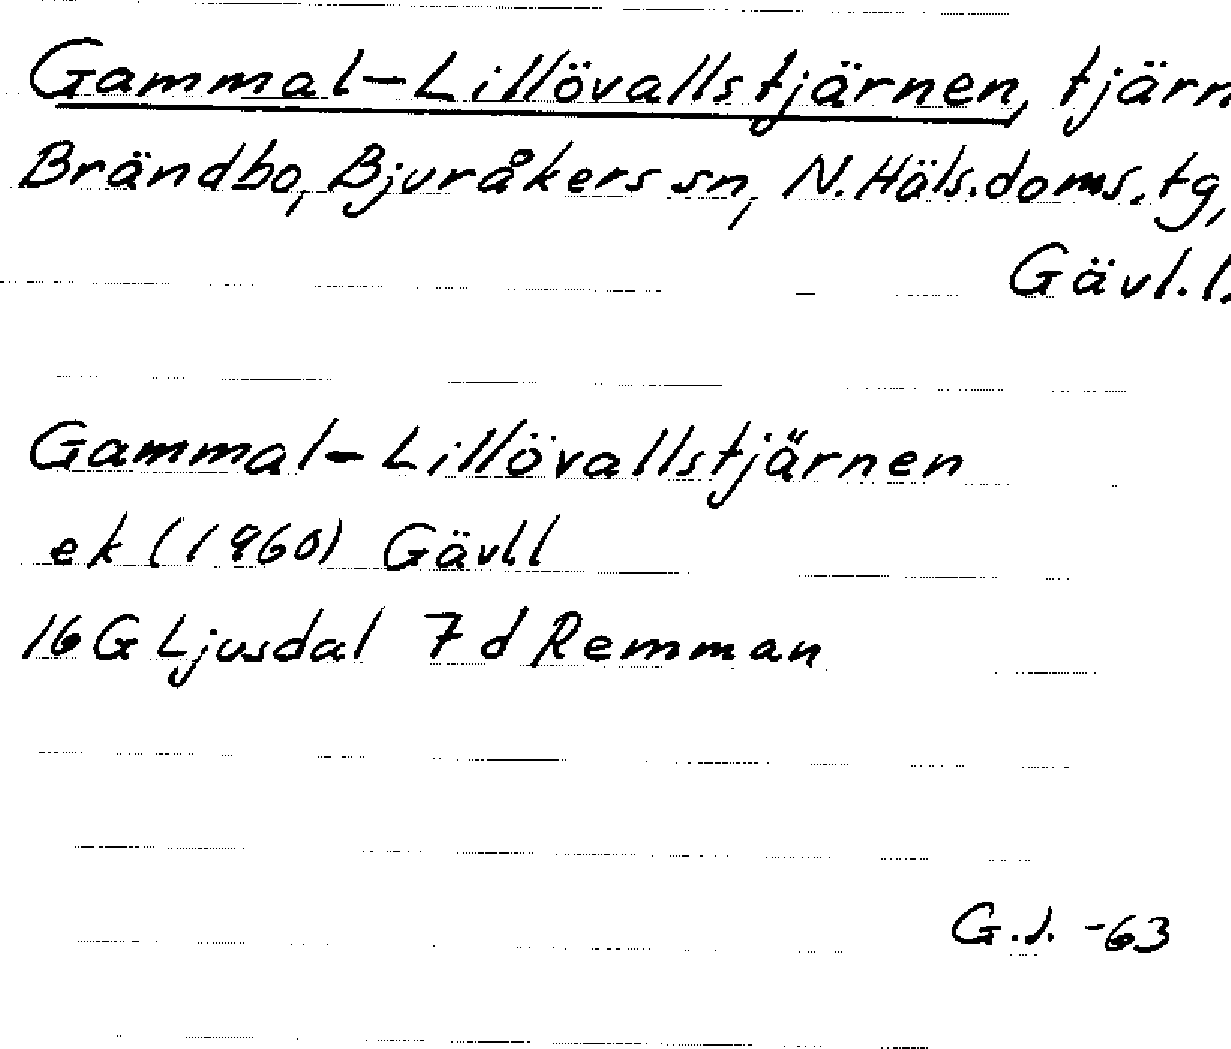 Gammal-Lillövallstjärnen, tjärn
Brändbo, Bjuråkers sn, N.Häls.doms.tg,
Gävl.l.
Gammal-Lillövallstjärnen
ek (1960) Gävl.l
16G Ljusdal 7d Remman
G.J. -63